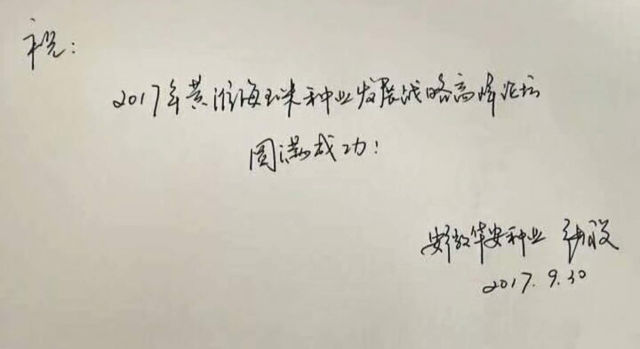 祝：
2017年黄淮海玉米种业发展战略高峰论坛
圆满成功！
安徽华安种业 张
2017.9.30